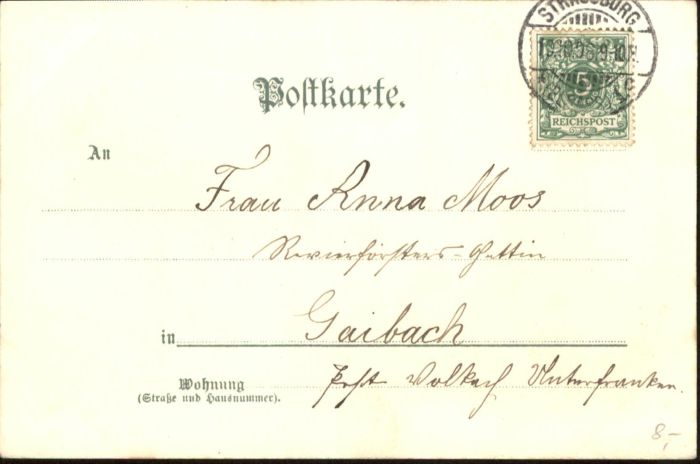 STRASSBURG
5
REICHSPOST
Postkarte.
An
Frau Anna Moos
Revierförsters-Gattin
in Gaibach
Post Volkach Unterfranken.
Wohnung
(Straße und Hausnummer).
8,-